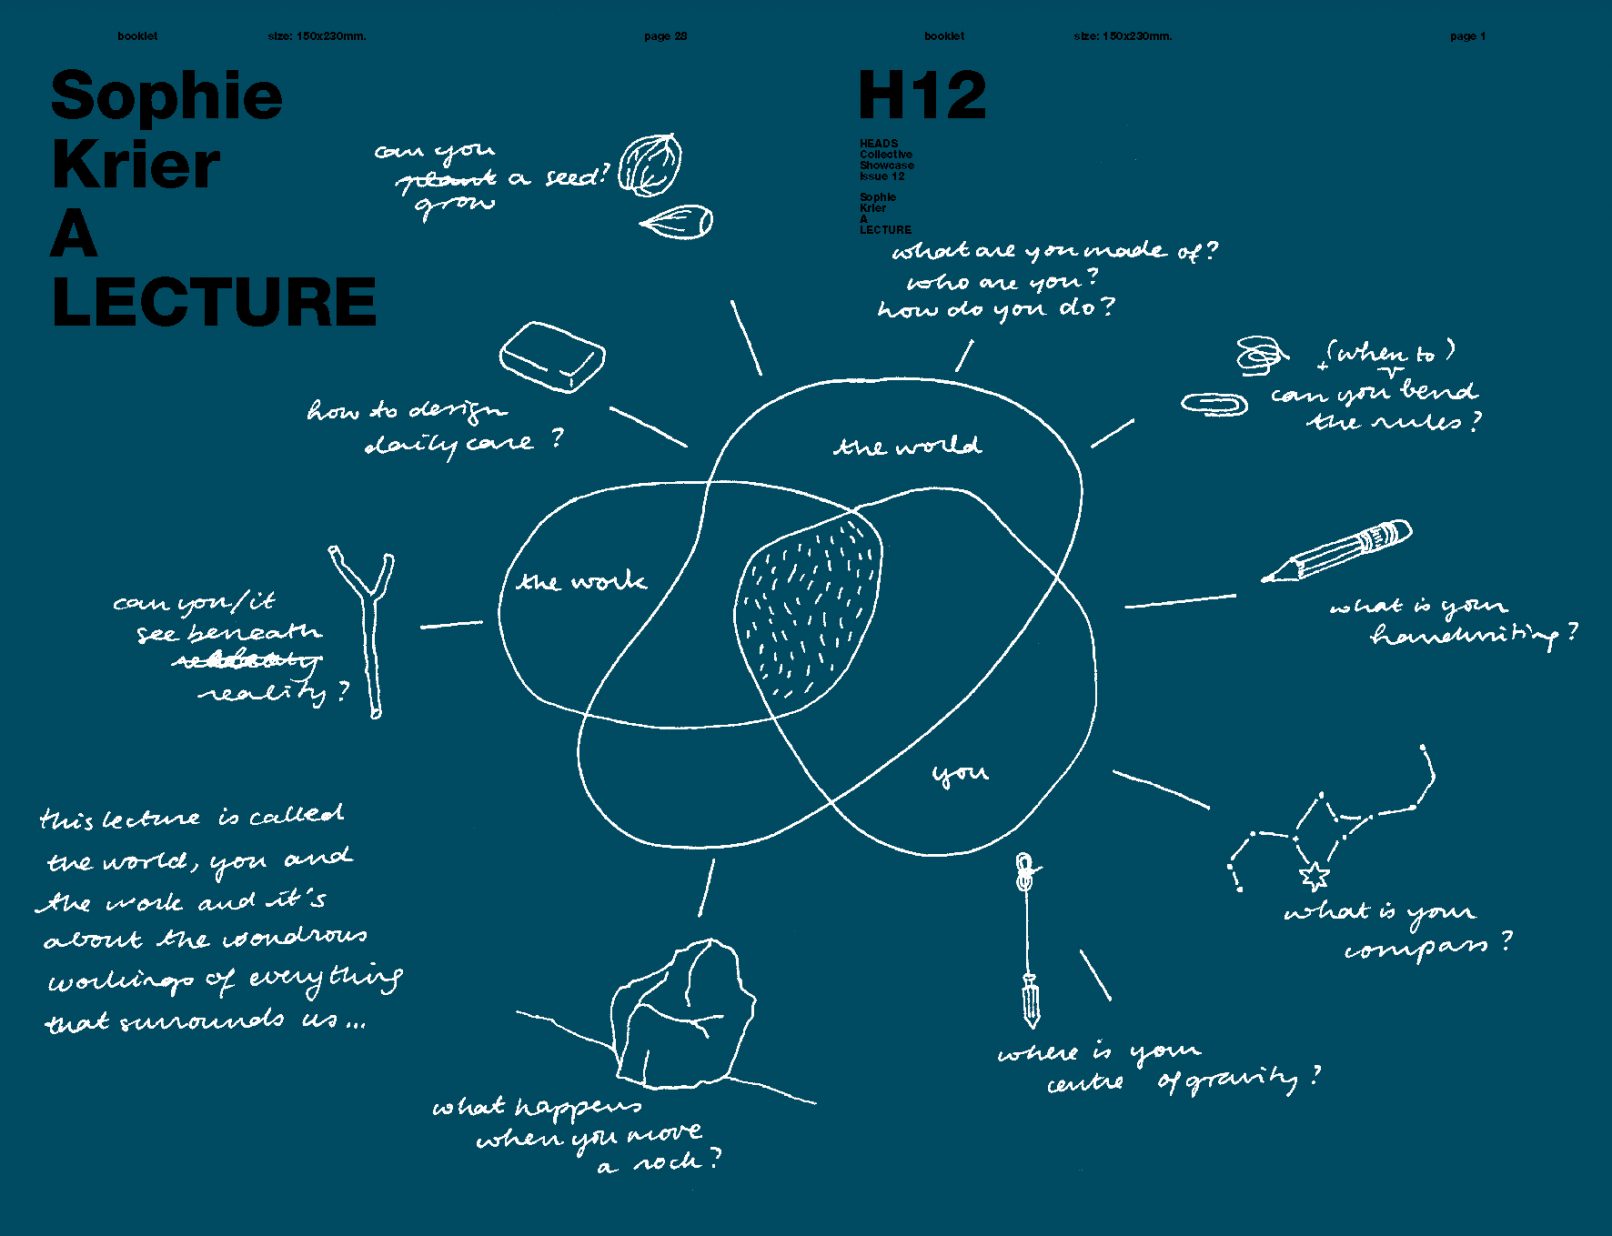 booklet size: 150x230mm. page 28
booklet size: 150x230mm. page 1
Sophie
Krier
A
LECTURE
H12
HEADS
Collective
Showcase
Issue 12
Sophie
Krier
A
LECTURE
can you
plant a seed?
grow
what are you made of?
who are you?
how do you do?
+ (when to)
can you bend
the rules?
how to design
daily care?
the world
the work
you
can you/it
see beneath
reality?
what is your
handwriting?
what is your
compass?
where is your
centre of gravity?
what happens
when you move
a rock?
this lecture is called
the world, you and
the work and it's
about the wondrous
workings of everything
that surrounds us...